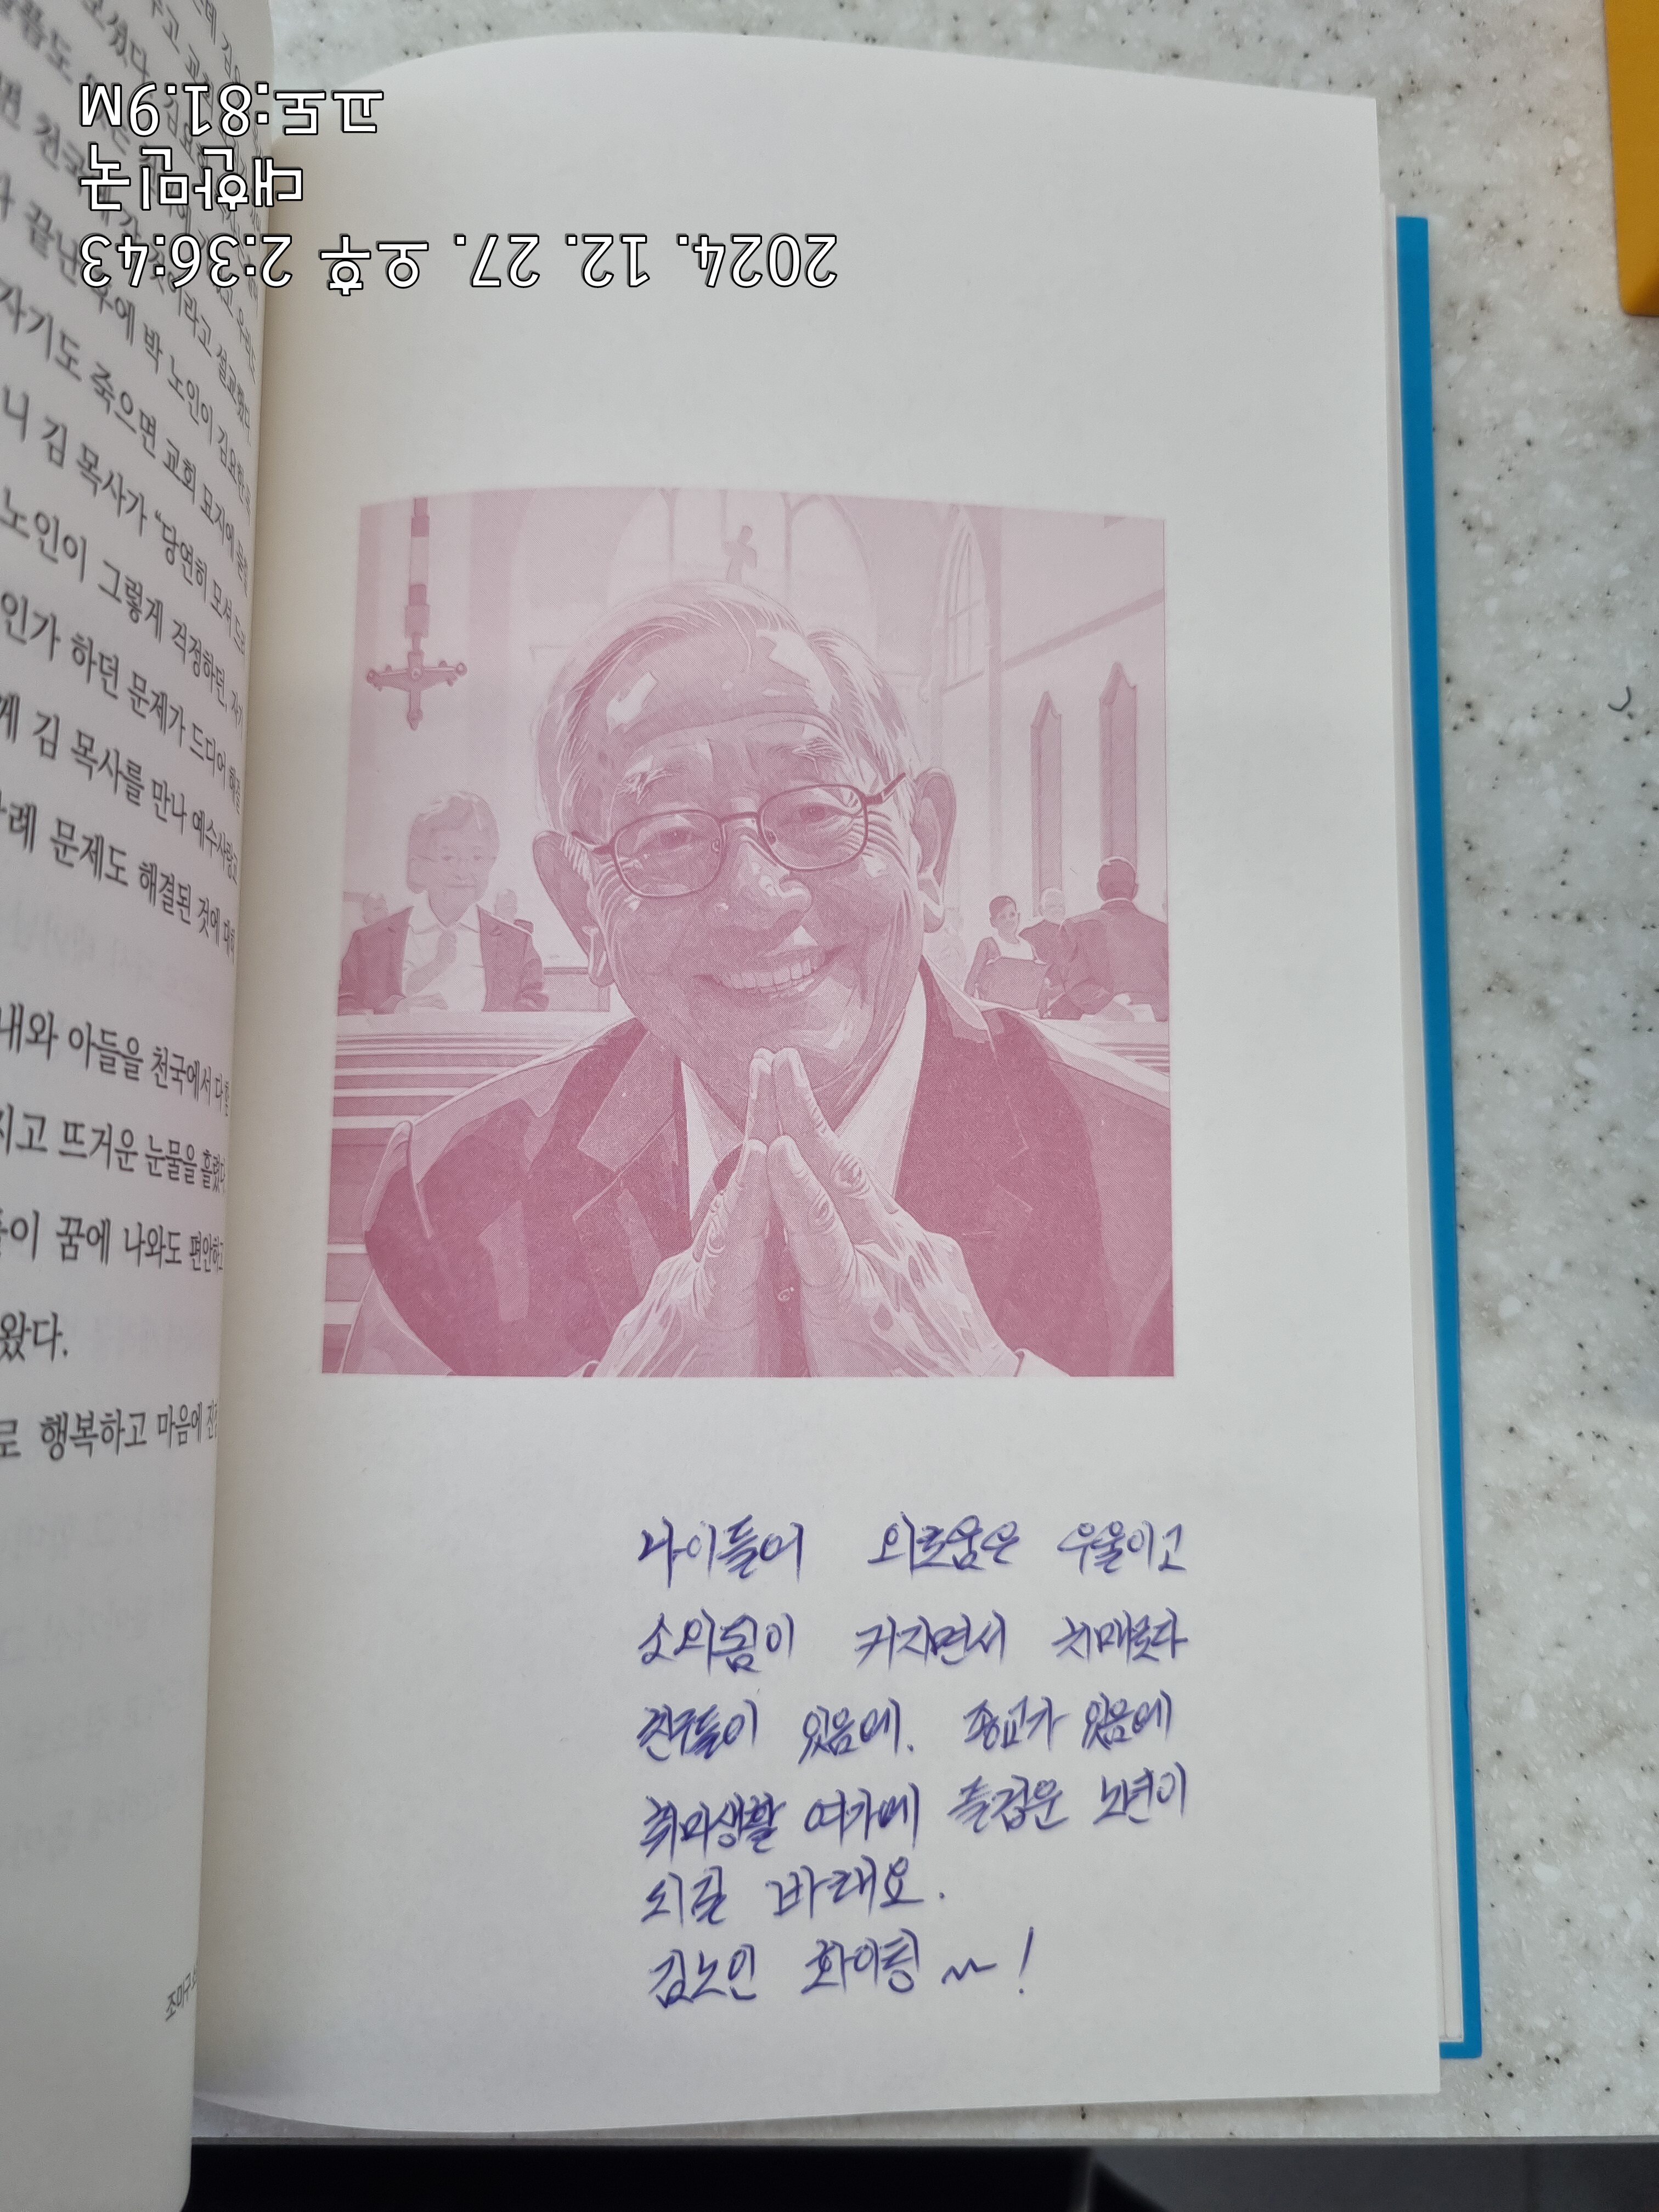 고도:81.9M
대한민국
2024. 12. 27. 오후 2:36:43
면 천국에
끝난 후에 박 노인이 김요한
자기도 죽으면 교회 묘지에
니 김 목사가 “당연히 모셔
노인이 그렇게 걱정하던, 자기
인가 하던 문제가 드디어 해결
게 김 목사를 만나 예수사랑교
문제도 해결된 것에 대해
내와 아들을 천국에서 다
시고 뜨거운 눈물을 흘렸다
들이 꿈에 나와도 편안하고
왔다.
로 행복하고 마음에
나이들어 외로움은 우울이고
소외됨이 커지면서 치매로다
친구들이 있음에. 종교가 있음에
취미생활 여가에 즐겁운 노년이
되길 바래요.
김노인 화이팅 ~!